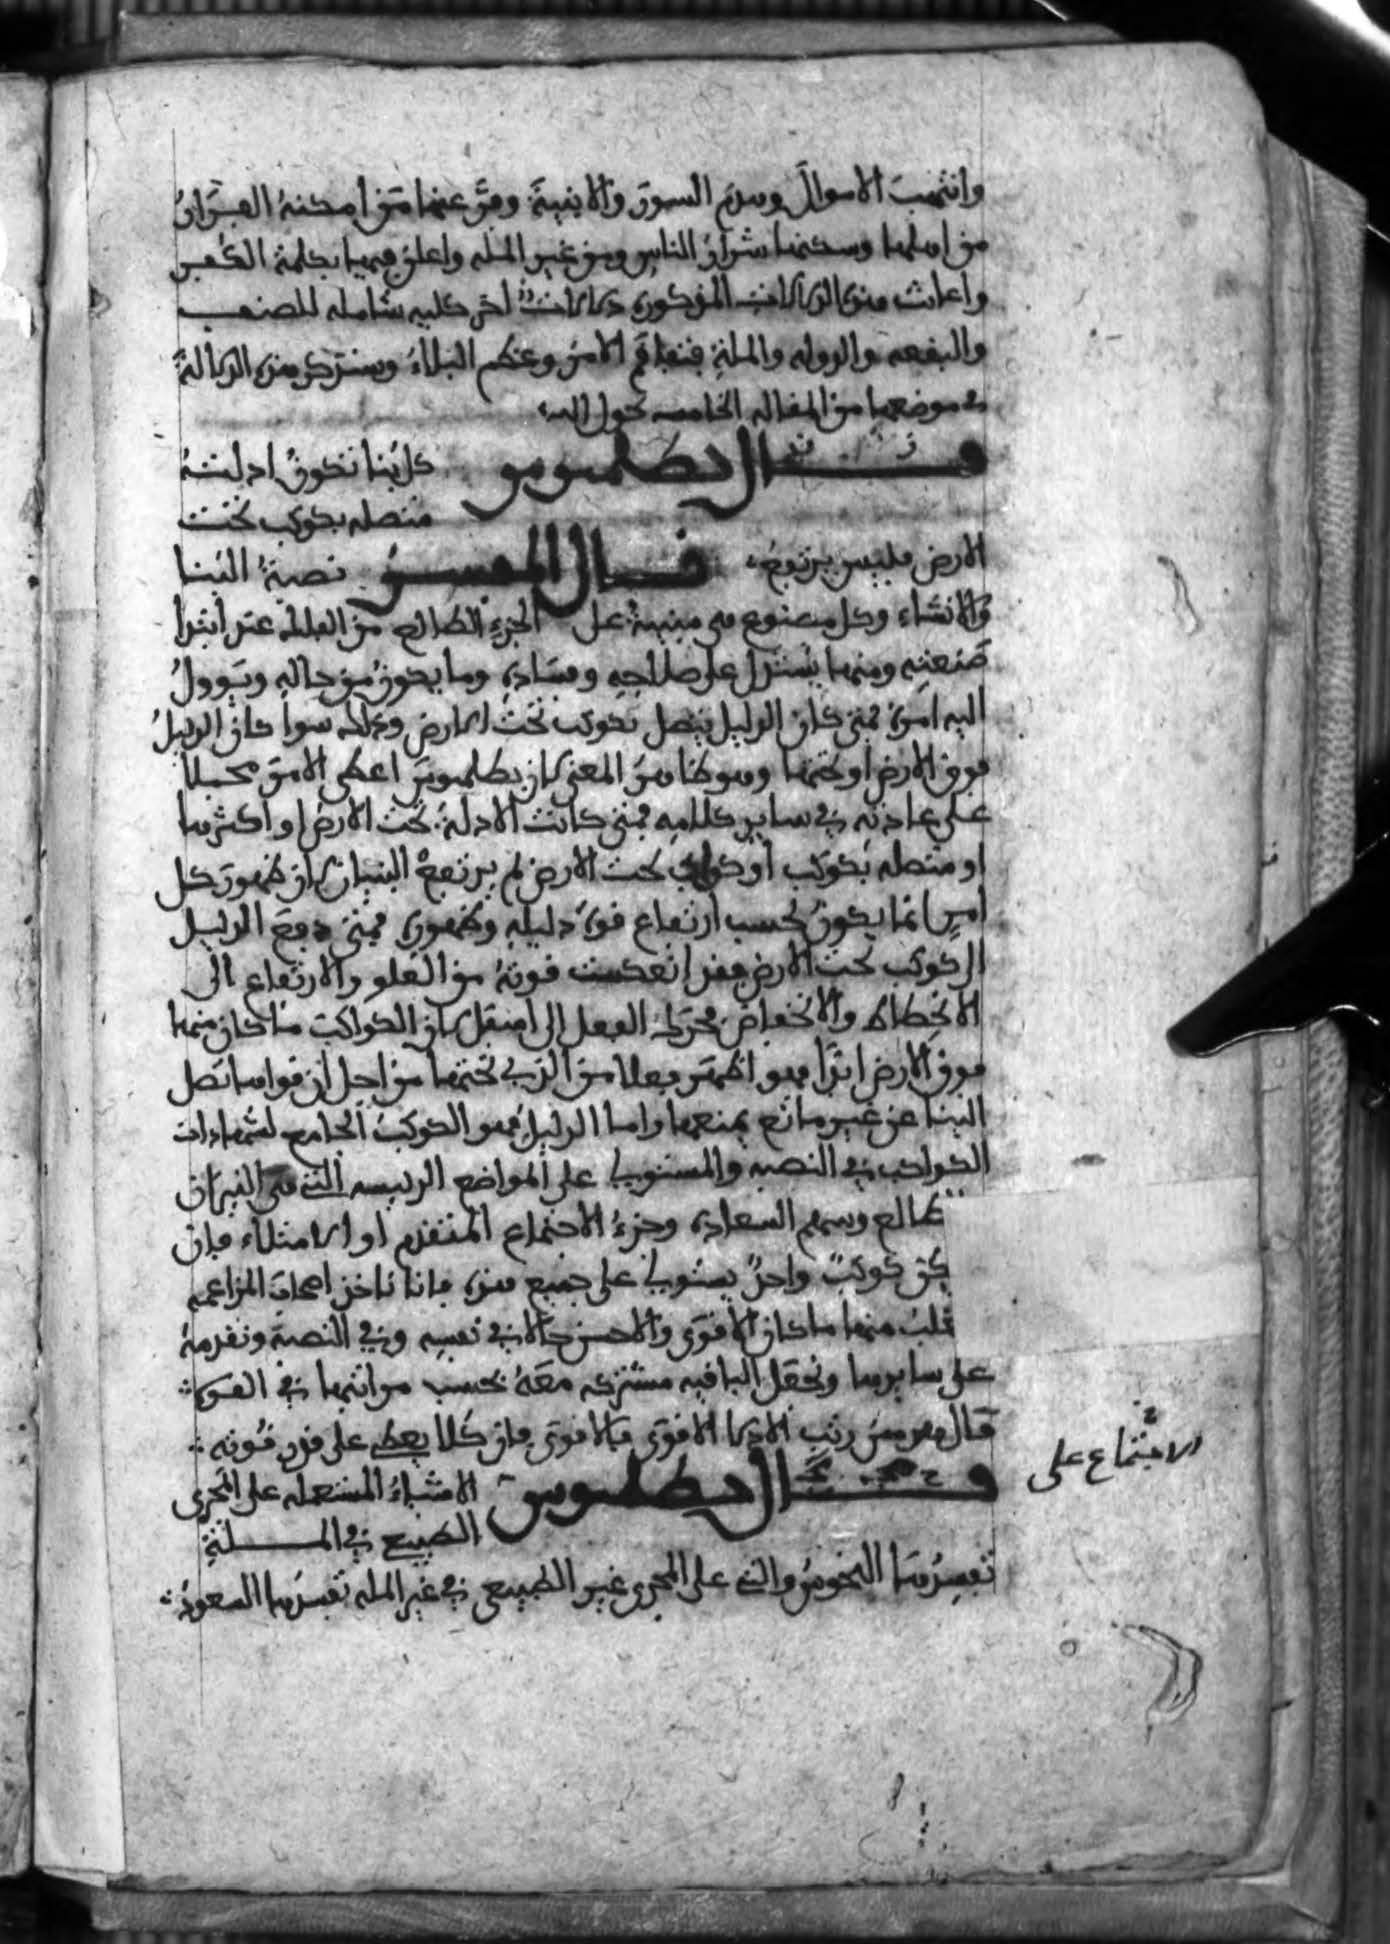 وانتهبت الاموال وهدم السور والابنية وفر عنها من امكنه الفرار
من اهلها وسكنها شرار الناس ومن غير المله واعلن فيها بكلمة الكفر
واعانت هذه الدلالات المذكوره دلالات اخر كليه شامله للصنف
والبقعه والدوله والملة فتفاقم الامر وعظم البلاء وسنذكر هذه الدلالة
في موضعها من المقاله الخامسه بحول الله
قال بطلميوس كل بنا تكون ادلته
متصله بكوكب تحت
الارض فليس يرتفع قال المفسر نصبة البنا
والانشاء وكل مصنوع هي مبنية على الجزء الطالع من الفلك عند ابتدا
صنعته ومنها يستدل على صلاحه وفساده وما يكون من حاله ويوول
اليه امره فمتى كان الدليل يتصل بكوكب تحت الارض وذلك سوا كان الدليل
فوق الارض او تحتها وهو هنا هذا المعنى لان بطلميوس اعطى الامر مجملا
على عادته في ساير كلامه فمتى كانت الادلة تحت الارض او اكثرها
او متصله بكوكب او كواكب تحت الارض لم يرتفع البنيان لان ظهور كل
امر انما يكون بحسب ارتفاع قوة دليله وظهوره فمتى دفع الدليل
الى كوكب تحت الارض فقد انعكست قوته من العلو والارتفاع الى
الانحطاط والانخفاض فحركة الفعل الى اسفل لان الكواكب ما كان منها
فوق الارض ابدا فهو اظهر فعلا من الذي تحتها من اجل ان قواها تصل
الينا عن غير مانع يمنعها واما الدليل فهو الكوكب الجامع لشهادات
الكواكب في النصبه والمستولي على المواضع الرييسه التي هي النيران
طالع وسهم السعاده وجزء الاجتماع المتقدم او الامتلاء فان
يكن كوكب واحد يستولي على جميع هذه فانا ناخذ اصحاب المزاعمه
قلب منها ما كان الاقوى والاحسن حالا في نفسه وفي النصبة ونقدمه
على سايرها ونجعل الباقيه مشتركه معه بحسب مراتبها في القوة
قال هرمس رتب الادلا الاقوى فالاقوى فان كلا يعطي على قدر قوته
قال بطلميوس الاشياء المستعمله على المجرى
الطبيعي في المسلة
تفسدها النحوس والتي على المجرى غير الطبيعي في غير المله تفسدها السعود
الاجتماع على